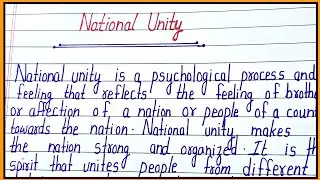 National Unity
National unity is a psychological process and
feeling that reflects the feeling of brothe
or affection of a nation or people of a coun
towards the nation. National unity makes
the nation strong and organized. It is th
spirit that unites people from different